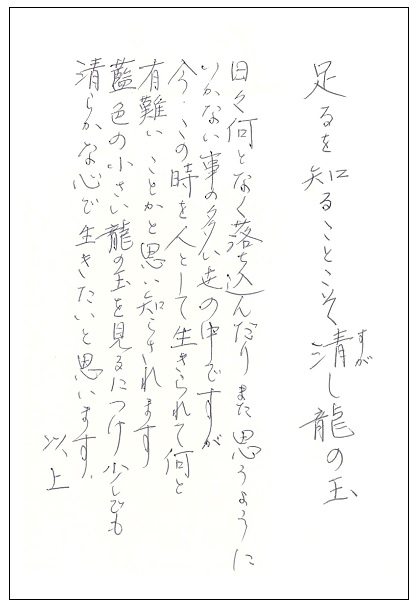 足るを知ることこそ清し龍の玉
すが
日々何となく落ち込んだりまた思うように
いかない事の多い世の中ですが
今、この時を人として生きられて何と
有難いことかと思い知らされます
藍色の小さい龍の玉を見るにつけ少しでも
清らかな心で生きたいと思います。
以上